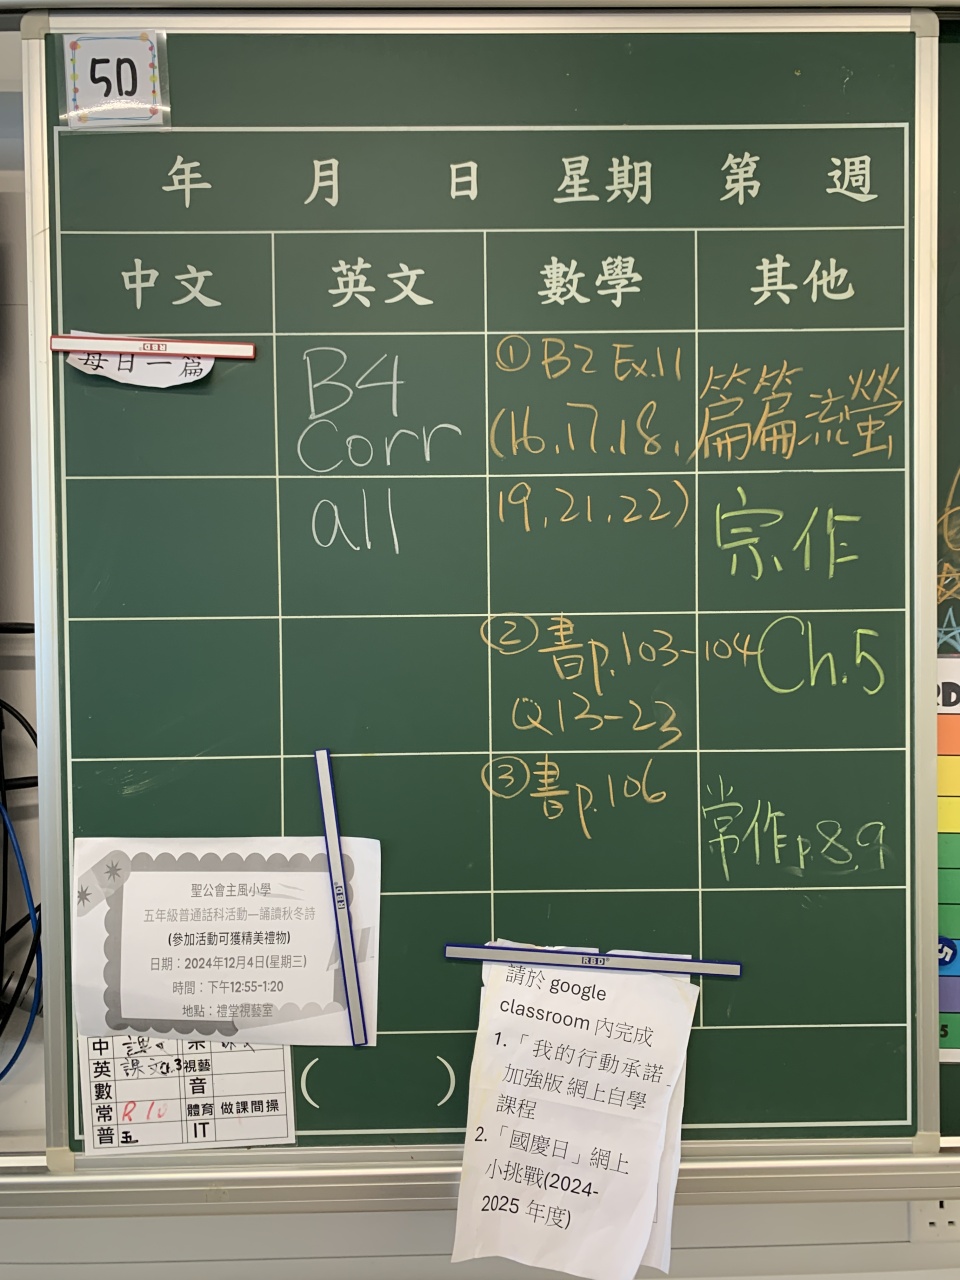 5D
年 月 日 星期 第 週
中文 英文 數學 其他
每日一篇
B4
Corr
all
① B2 Ex.11
(16,17,18,
19,21,22)
② 書p.103-104
Q13-23
③ 書p.106
篇篇流螢
宗作
Ch.5
常作p.8,9
RBD
聖公會主風小學
五年級普通話科活動—誦讀秋冬詩
(參加活動可獲精美禮物)
日期：2024年12月4日(星期三)
時間：下午12:55-1:20
地點：禮堂視藝室
RBD
RBD
請於 google
classroom 內完成
1.「我的行動承諾」
加強版 網上自學
課程
2.「國慶日」網上
小挑戰(2024-
2025 年度)
中
英 視藝
數 音
常 R 10 體育 做課間操
普 五 IT
( )
5